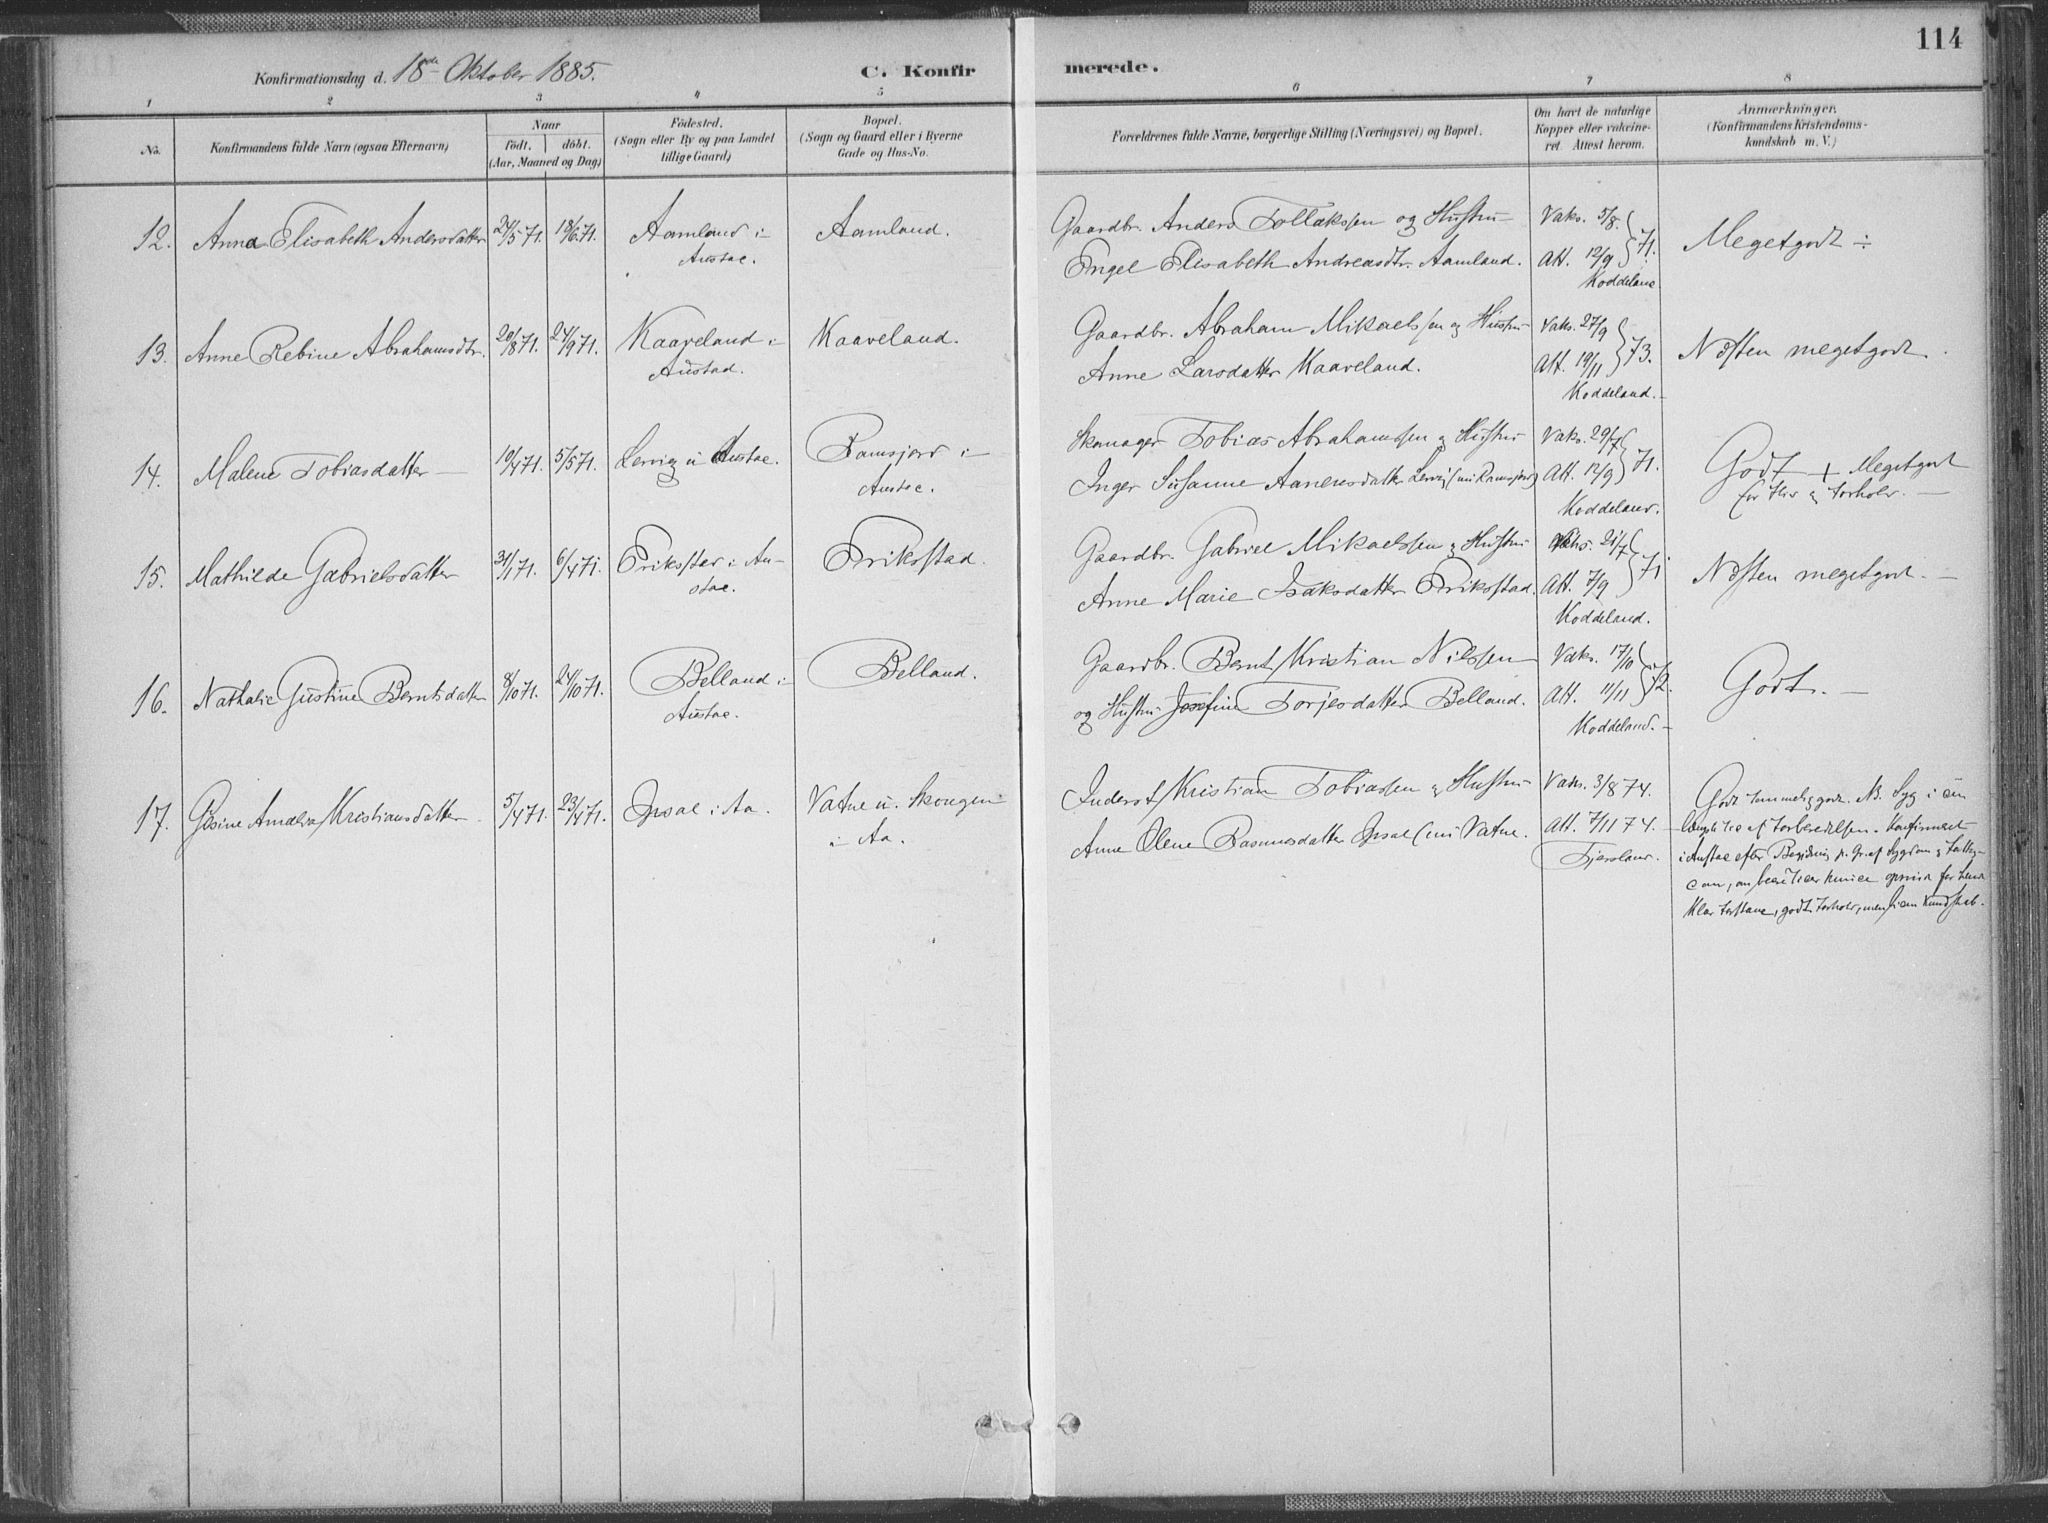 114
Konfirmationsdag d. 18de Oktober 1885.
C. Konfirmerede.
1 2 3 4 5 6 7 8
No.
Konfirmandens fulde Navn (ogsaa Efternavn)
Naar
født. døbt.
(Aar, Maaned og Dag)
Fødested.
(Sogn eller By og paa Landet
tillige Gaard)
Bopæl.
(Sogn og Gaard eller i Byerne
Gade og Hus-No.
Forældrenes fulde Navne, borgerlige Stilling (Næringsvei) og Bopæl.
Om havt de naturlige
Kopper eller vakcine-
ret. Attest herom.
Anmærkninger.
(Konfirmandens Kristendoms-
kundskab m. V.)
12. Anna Elisabeth Andersdatter 24/5 71. 18/6 71. Aamland i Aamland. Gaardbr. Anders Tollaksen og Hustru Vaks. 5/8 Megetgodt ÷
Austad. Engel Elisabeth Andreasdtr. Aamland. Att. 12/9 } 71.
Koddeland
13. Anne Rebine Abrahamsdtr. 20/8 71. 24/9 71. Kaaveland i Kaaveland. Gaardbr. Abraham Mikaelssen og Hustru Vaks. 27/9 Næsten megetgodt.
Austad. Anne Larsdatter Kaaveland. Att. 19/11 } 73.
Koddeland.
14. Malene Tobiasdatter 10/4 71. 5/5 71. Lervig u Austad. Ramsjord i Skomager Tobias Abrahamssen og Hustru Vaks. 29/7 Godt + Megetgodt
Austad. Inger Susanne Aanensdatter Lervig (nu Ramsjord) Att. 12/9 } 71. for Flid og Forhold.
Koddeland.
15. Mathilde Gabrielsdatter 31/1 71. 6/4 71. Eriksstad i Au- Eriksstad. Gaardbr. Gabriel Mikaelssen og Hustru Vaks. 21/7 Næsten megetgodt.
stad. Anne Marie Isaksdatter Eriksstad. Att. 7/9 } 71
Koddeland.
16. Nathalie Gustine Berntsdatter 8/10 71. 24/10 71. Belland i Belland. Gaardbr. Bernt Kristian Nilssen Vaks. 17/10 Godt.
Austad. og Hustru Josefine Torjesdatter Belland. Att. 11/11 } 72.
Koddeland.
17. Gisine Amalia Kristiansdatter 5/4 71. 23/4 71. Opsal i Aa. Vatne u. Skougen Inderst Kristian Tobiassen og Hustru Vaks. 3/8 74. Godt temmelig godt. NB. Syg i en
i Aa. Anne Olene Rasmusdatter Opsal (nu Vatne. Att. 7/11 74. længde Tid af Forberedelsen. Konfirmeret
Fjersland. i Austad efter Begjæring p. Gr. af Sygdom og
Klar Forstand, godt Forhold, men Kundskab.